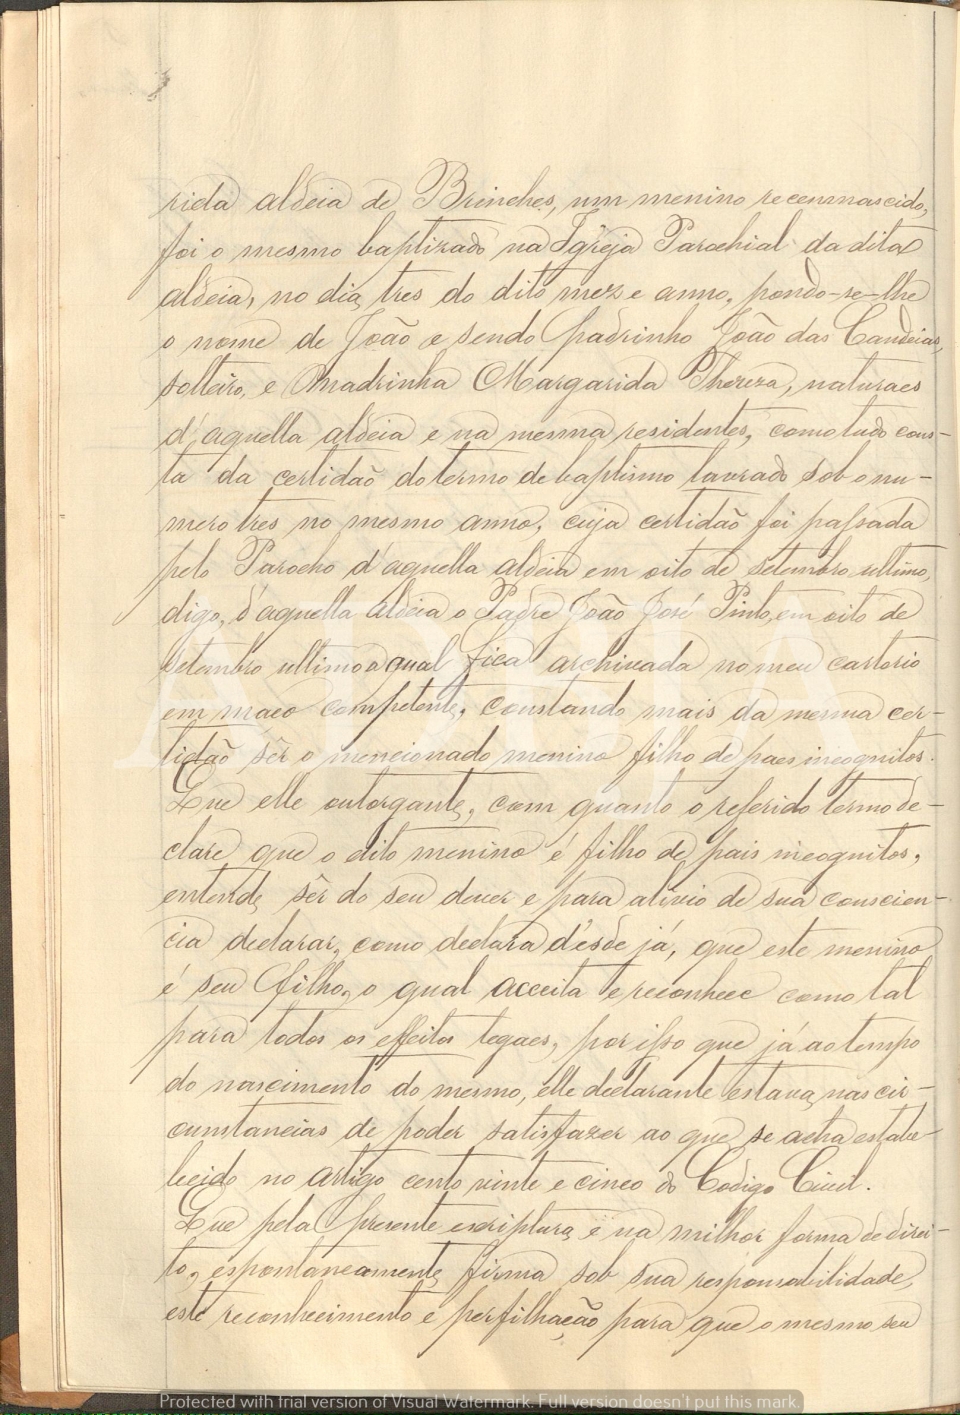 rida aldeia de Brinches, um menino recemnascido,
foi o mesmo baptizado na Igreja Parochial da dita
aldeia, no dia tres do dito mez e anno, pondo-se-lhe
o nome de João e sendo padrinho João das Candeias,
solteiro, e Madrinha Margarida Thereza, naturaes
d'aquella aldeia e na mesma residentes, como tudo cons-
ta da certidão do termo de baptismo lavrado sob o nu-
mero tres no mesmo anno, cuja certidão foi passada
pelo Parocho d'aquella aldeia em oito de setembro ultimo,
digo, d'aquella aldeia o Padre João José Pinto, em oito de
setembro ultimo a qual fica archivada no meu cartorio
em maço competente, constando mais da mesma cer-
tidão sêr o mencionado menino filho de paes incognitos.
Que elle outorgante, com quanto o referido termo de-
clare que o dito menino é filho de pais incognitos,
entende sêr do seu dever e para alivio de sua conscien-
cia declarar, como declara désde já, que este menino
é seu filho, o qual acceita e reconhece como tal
para todos os effeitos legaes, por isso que já ao tempo
do nascimento do mesmo, elle declarante estava nas cir-
cumstancias de poder satisfazer ao que se acha estabe-
lecido no artigo cento vinte e cinco do Codigo Civil.
Que pela presente escriptura e na milhor forma de direi-
to, espontaneamente firma sob sua responsabilidade,
este reconhecimento e perfilhação para que o mesmo seu
ADBJA
Protected with trial version of Visual Watermark. Full version doesn't put this mark.